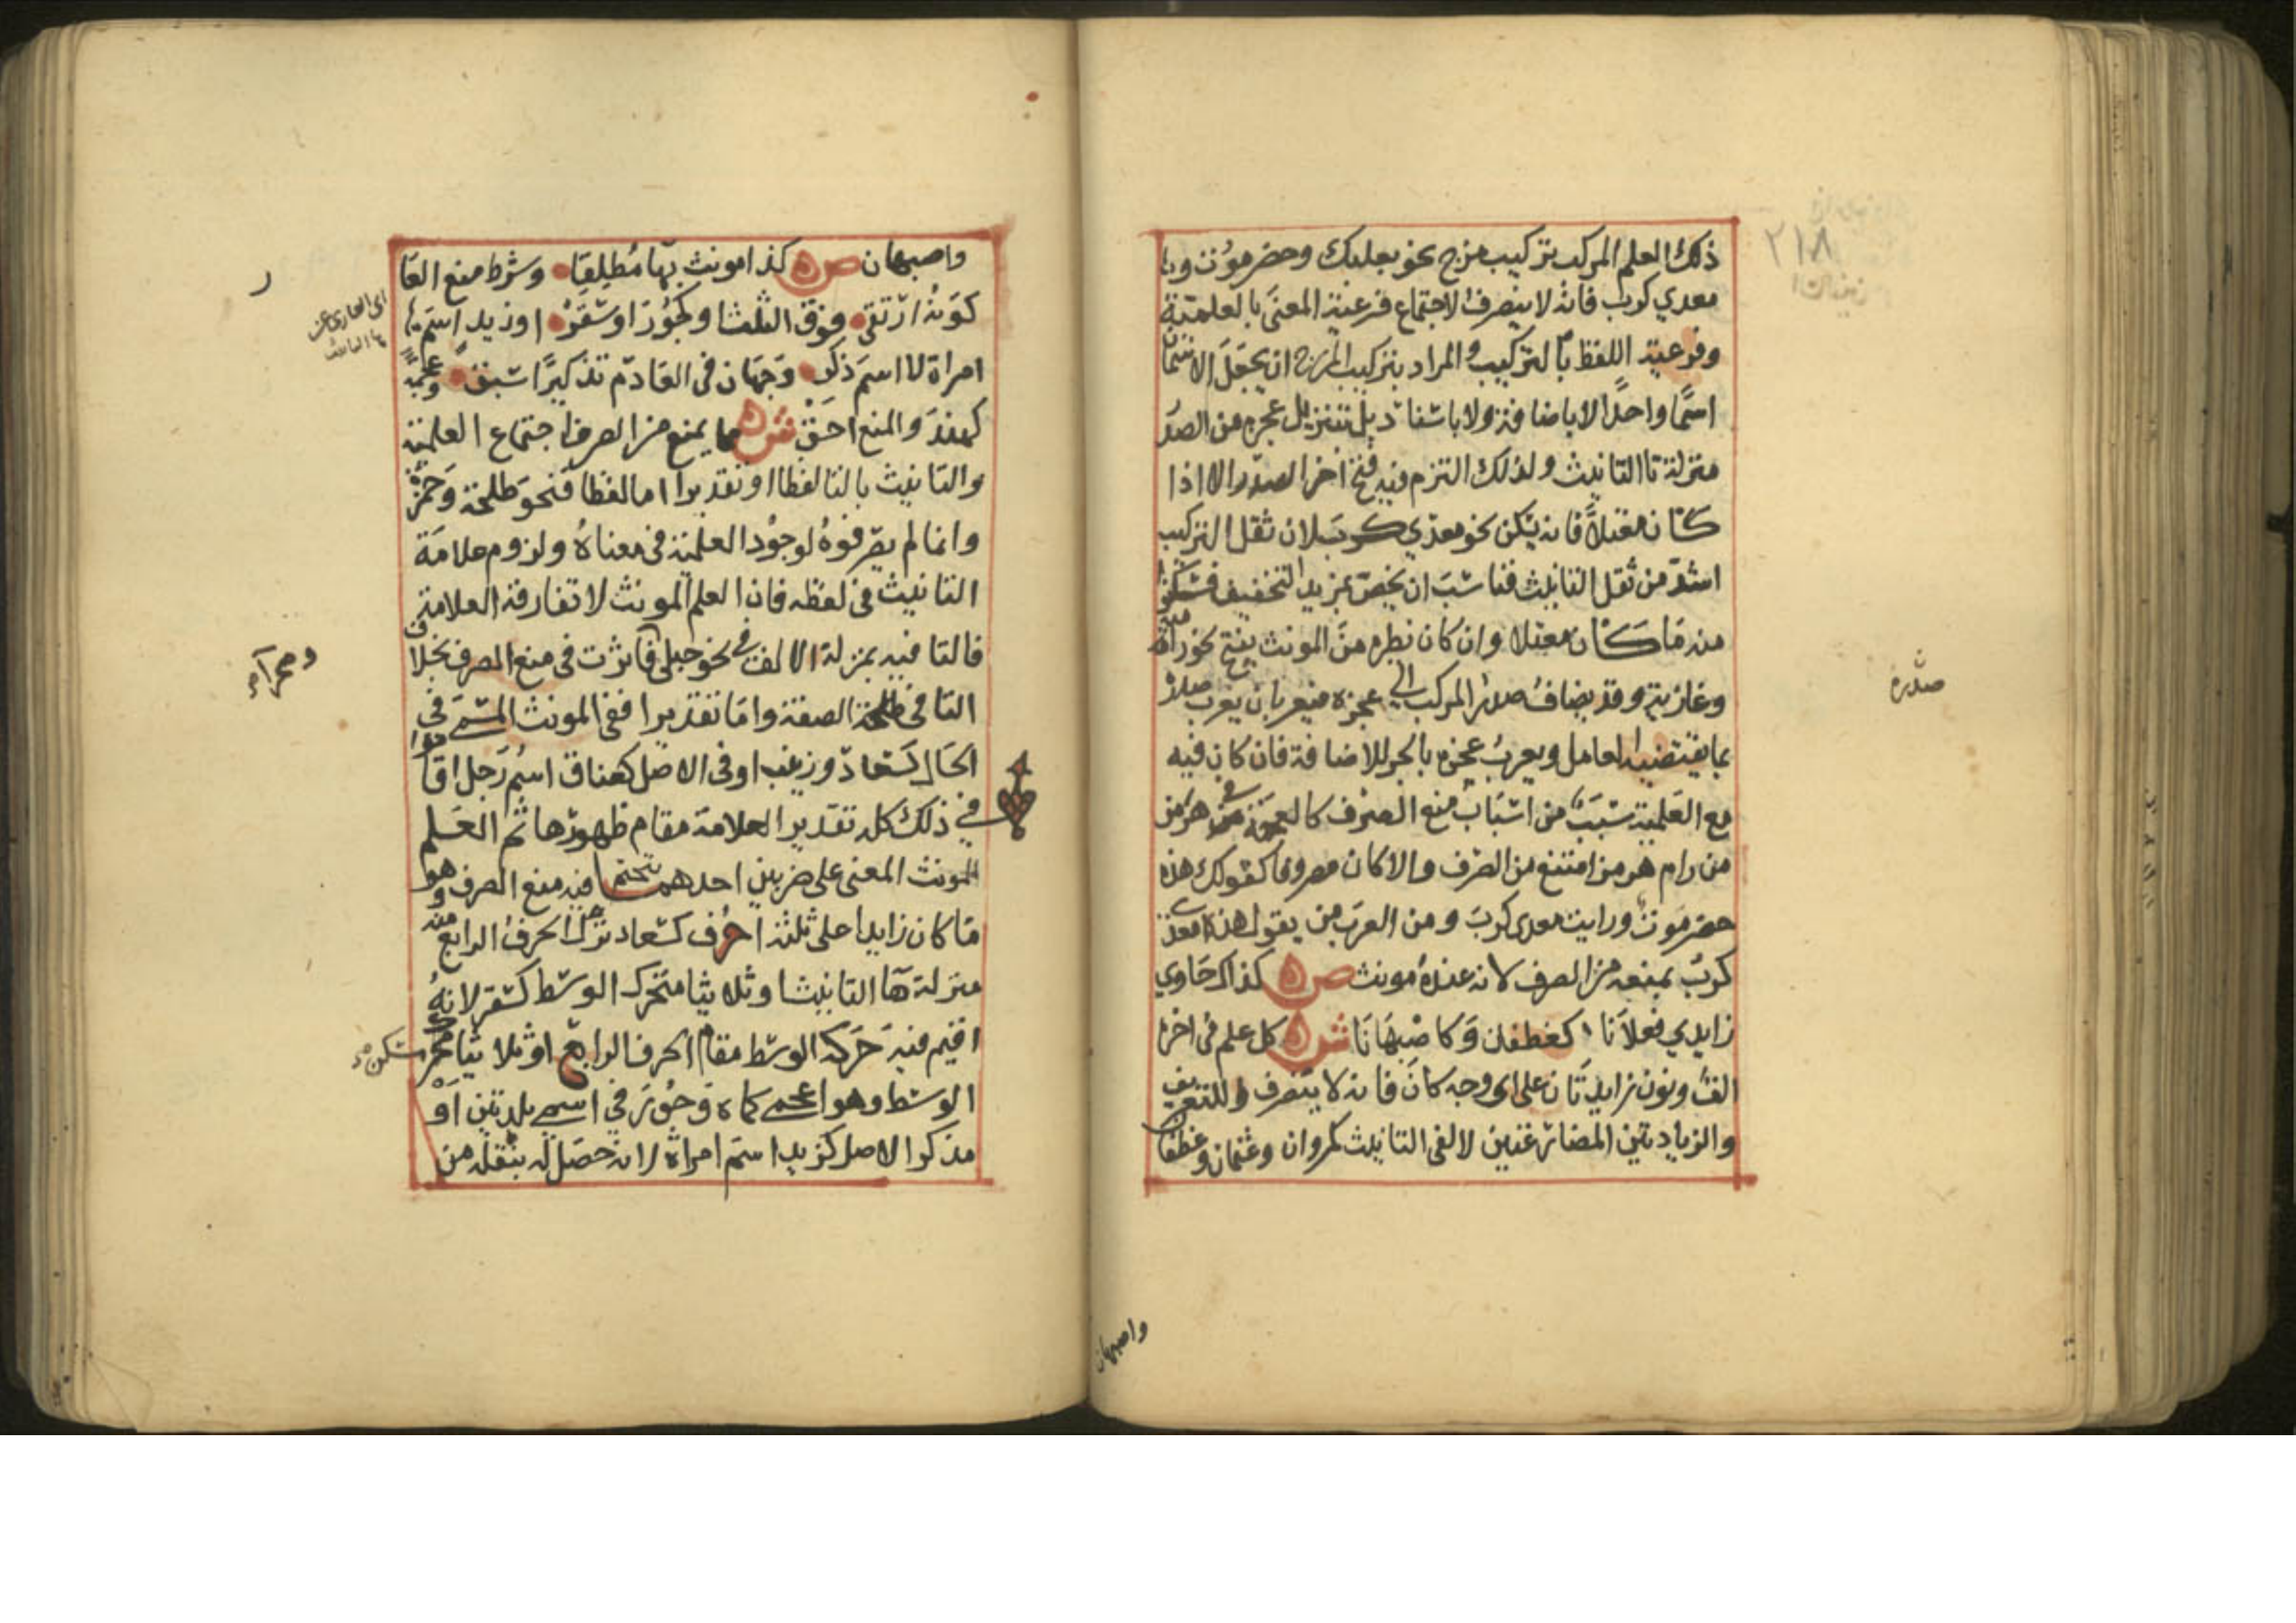 ذلك العلم المركب تركيب مزج نحو بعلبك وحضرموت و
معدي كرب فانه لا ينصرف لاجتماع فرعية المعنى بالعلمية
وفرعية اللفظ بالتركيب والمراد بتركيب المزج ان يجعل الاسمان
اسما واحدا لا باضافة ولا باسناد بل تنزيل عجزه من الصدر
منزلة تا التانيث ولذلك التزم فيه فتح اخر الصدر الا اذا
كان معتلا فانه يسكن نحو معدي كرب لان ثقل التركيب
اشد من ثقل التانيث فناسب ان يخص بمزيد التخفيف فسكنوا
منه ما كان معتلا وان كان نظيره من المونث يفتح نحو رامية
وغازية وقد يضاف صدر المركب الى عجزه فيعربان يعرب صدره
بما يقتضيه العامل ويعرب عجزه بالجر للاضافة فان كان فيه
مع العلمية سبب من اسباب منع الصرف كالعجمة في هرمز
من رام هرمز امتنع من الصرف والا كان مصروفا كقولك هذه
حضرموت ورايت معدي كرب ومن العرب من يقول هذا معدي
كرب يمنعه من الصرف لانه عنده مونث ص كذاك حاوي
زايدي فعلانا كغطفان وكاصبهانا ش كل علم في اخره
الف ونون زايدتان على اي وجه كان فانه لا ينصرف للتعريف
والزيادتين المضارعتين لالفي التانيث كمروان وعثمان وغطفان
واصبهان
صدره
٢١٨
واصبهان ص كذا مونث بها مطلقا وشرط منع العار
كونه ارتقى فوق الثلث او كجور او سقر او زيد اسم
امراة لا اسم ذكر وجهان في العادم تذكيرا سبق وعجمة
كهند والمنع احق ش مما يمنع من الصرف اجتماع العلمية
والتانيث بالتا لفظا او تقديرا اما لفظا فنحو طلحة وحمزة
وانما لم يصرفوه لوجود العلمية في معناه ولزوم علامة
التانيث في لفظه فان العلم المونث لا تفارقه العلامة
فالتا فيه بمنزلة الالف في نحو حبلى فاثرت في منع الصرف بخلاف
التا في الصفة واما تقديرا ففي المونث المسمى في
الحال كسعاد وزينب او في الاصل كعناق اسم رجل اقاموا
في ذلك كله تقدير العلامة مقام ظهورها ثم العلم
المونث المعنى على ضربين احدهما يتحتم فيه منع الصرف وهو
ما كان زايدا على ثلثة احرف كسعاد نزل الحرف الرابع منه
منزلة هآ التانيث او ثلاثيا متحرك الوسط كسقر لانه
اقيم فيه حركة الوسط مقام الحرف الرابع او ثلاثيا
الوسط وهو اعجمي كماه وجور في اسمي بلدتين او
مذكر الاصل كزيد اسم امراة لانه حصل له بنقله من
وصحرآء